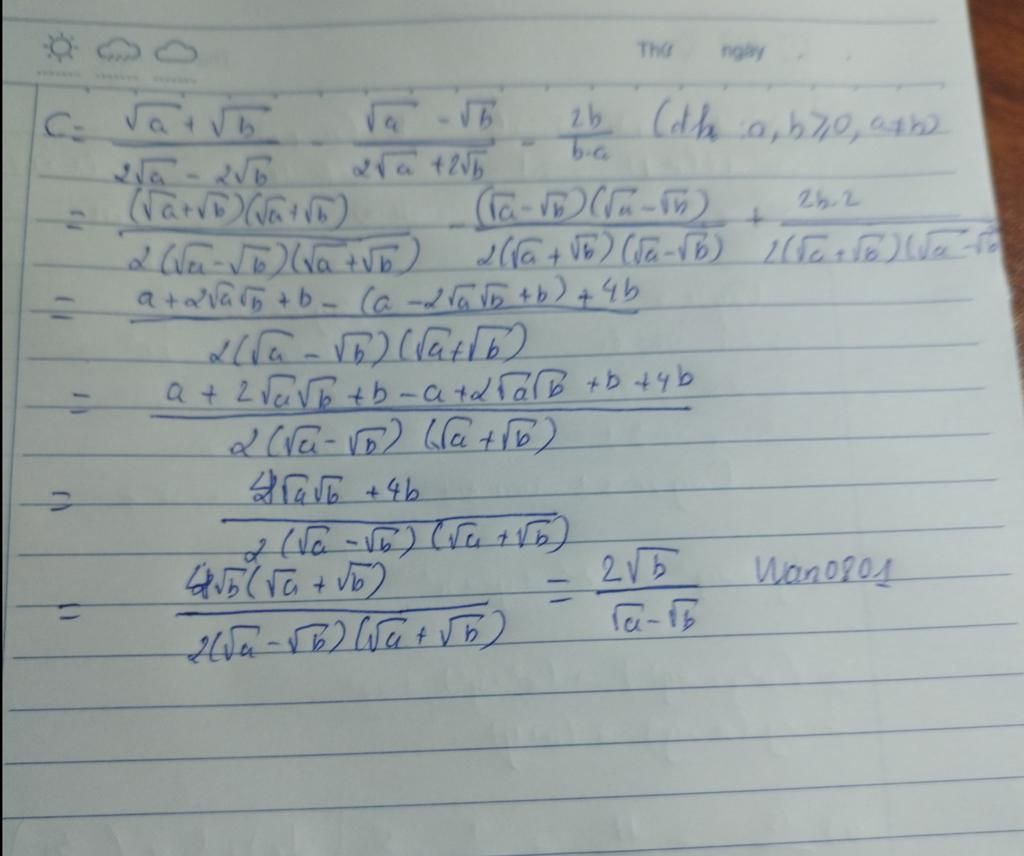 Thứ ngày
C = \frac{\sqrt{a} + \sqrt{b}}{2\sqrt{a} - 2\sqrt{b}} - \frac{\sqrt{a} - \sqrt{b}}{2\sqrt{a} + 2\sqrt{b}} - \frac{2b}{b-a} (đk: a, b ≥ 0, a ≠ b)
= \frac{(\sqrt{a}+\sqrt{b})(\sqrt{a}+\sqrt{b})}{2(\sqrt{a}-\sqrt{b})(\sqrt{a}+\sqrt{b})} - \frac{(\sqrt{a}-\sqrt{b})(\sqrt{a}-\sqrt{b})}{2(\sqrt{a}+\sqrt{b})(\sqrt{a}-\sqrt{b})} + \frac{2b.2}{2(\sqrt{a}+\sqrt{b})(\sqrt{a}-\sqrt{b}}
= \frac{a+2\sqrt{a}\sqrt{b}+b-(a-2\sqrt{a}\sqrt{b}+b)+4b}{2(\sqrt{a}-\sqrt{b})(\sqrt{a}+\sqrt{b})}
= \frac{a+2\sqrt{a}\sqrt{b}+b-a+2\sqrt{a}\sqrt{b}+b+4b}{2(\sqrt{a}-\sqrt{b})(\sqrt{a}+\sqrt{b})}
= \frac{4\sqrt{a}\sqrt{b}+4b}{2(\sqrt{a}-\sqrt{b})(\sqrt{a}+\sqrt{b})}
= \frac{4\sqrt{b}(\sqrt{a}+\sqrt{b})}{2(\sqrt{a}-\sqrt{b})(\sqrt{a}+\sqrt{b})} = \frac{2\sqrt{b}}{\sqrt{a}-\sqrt{b}}